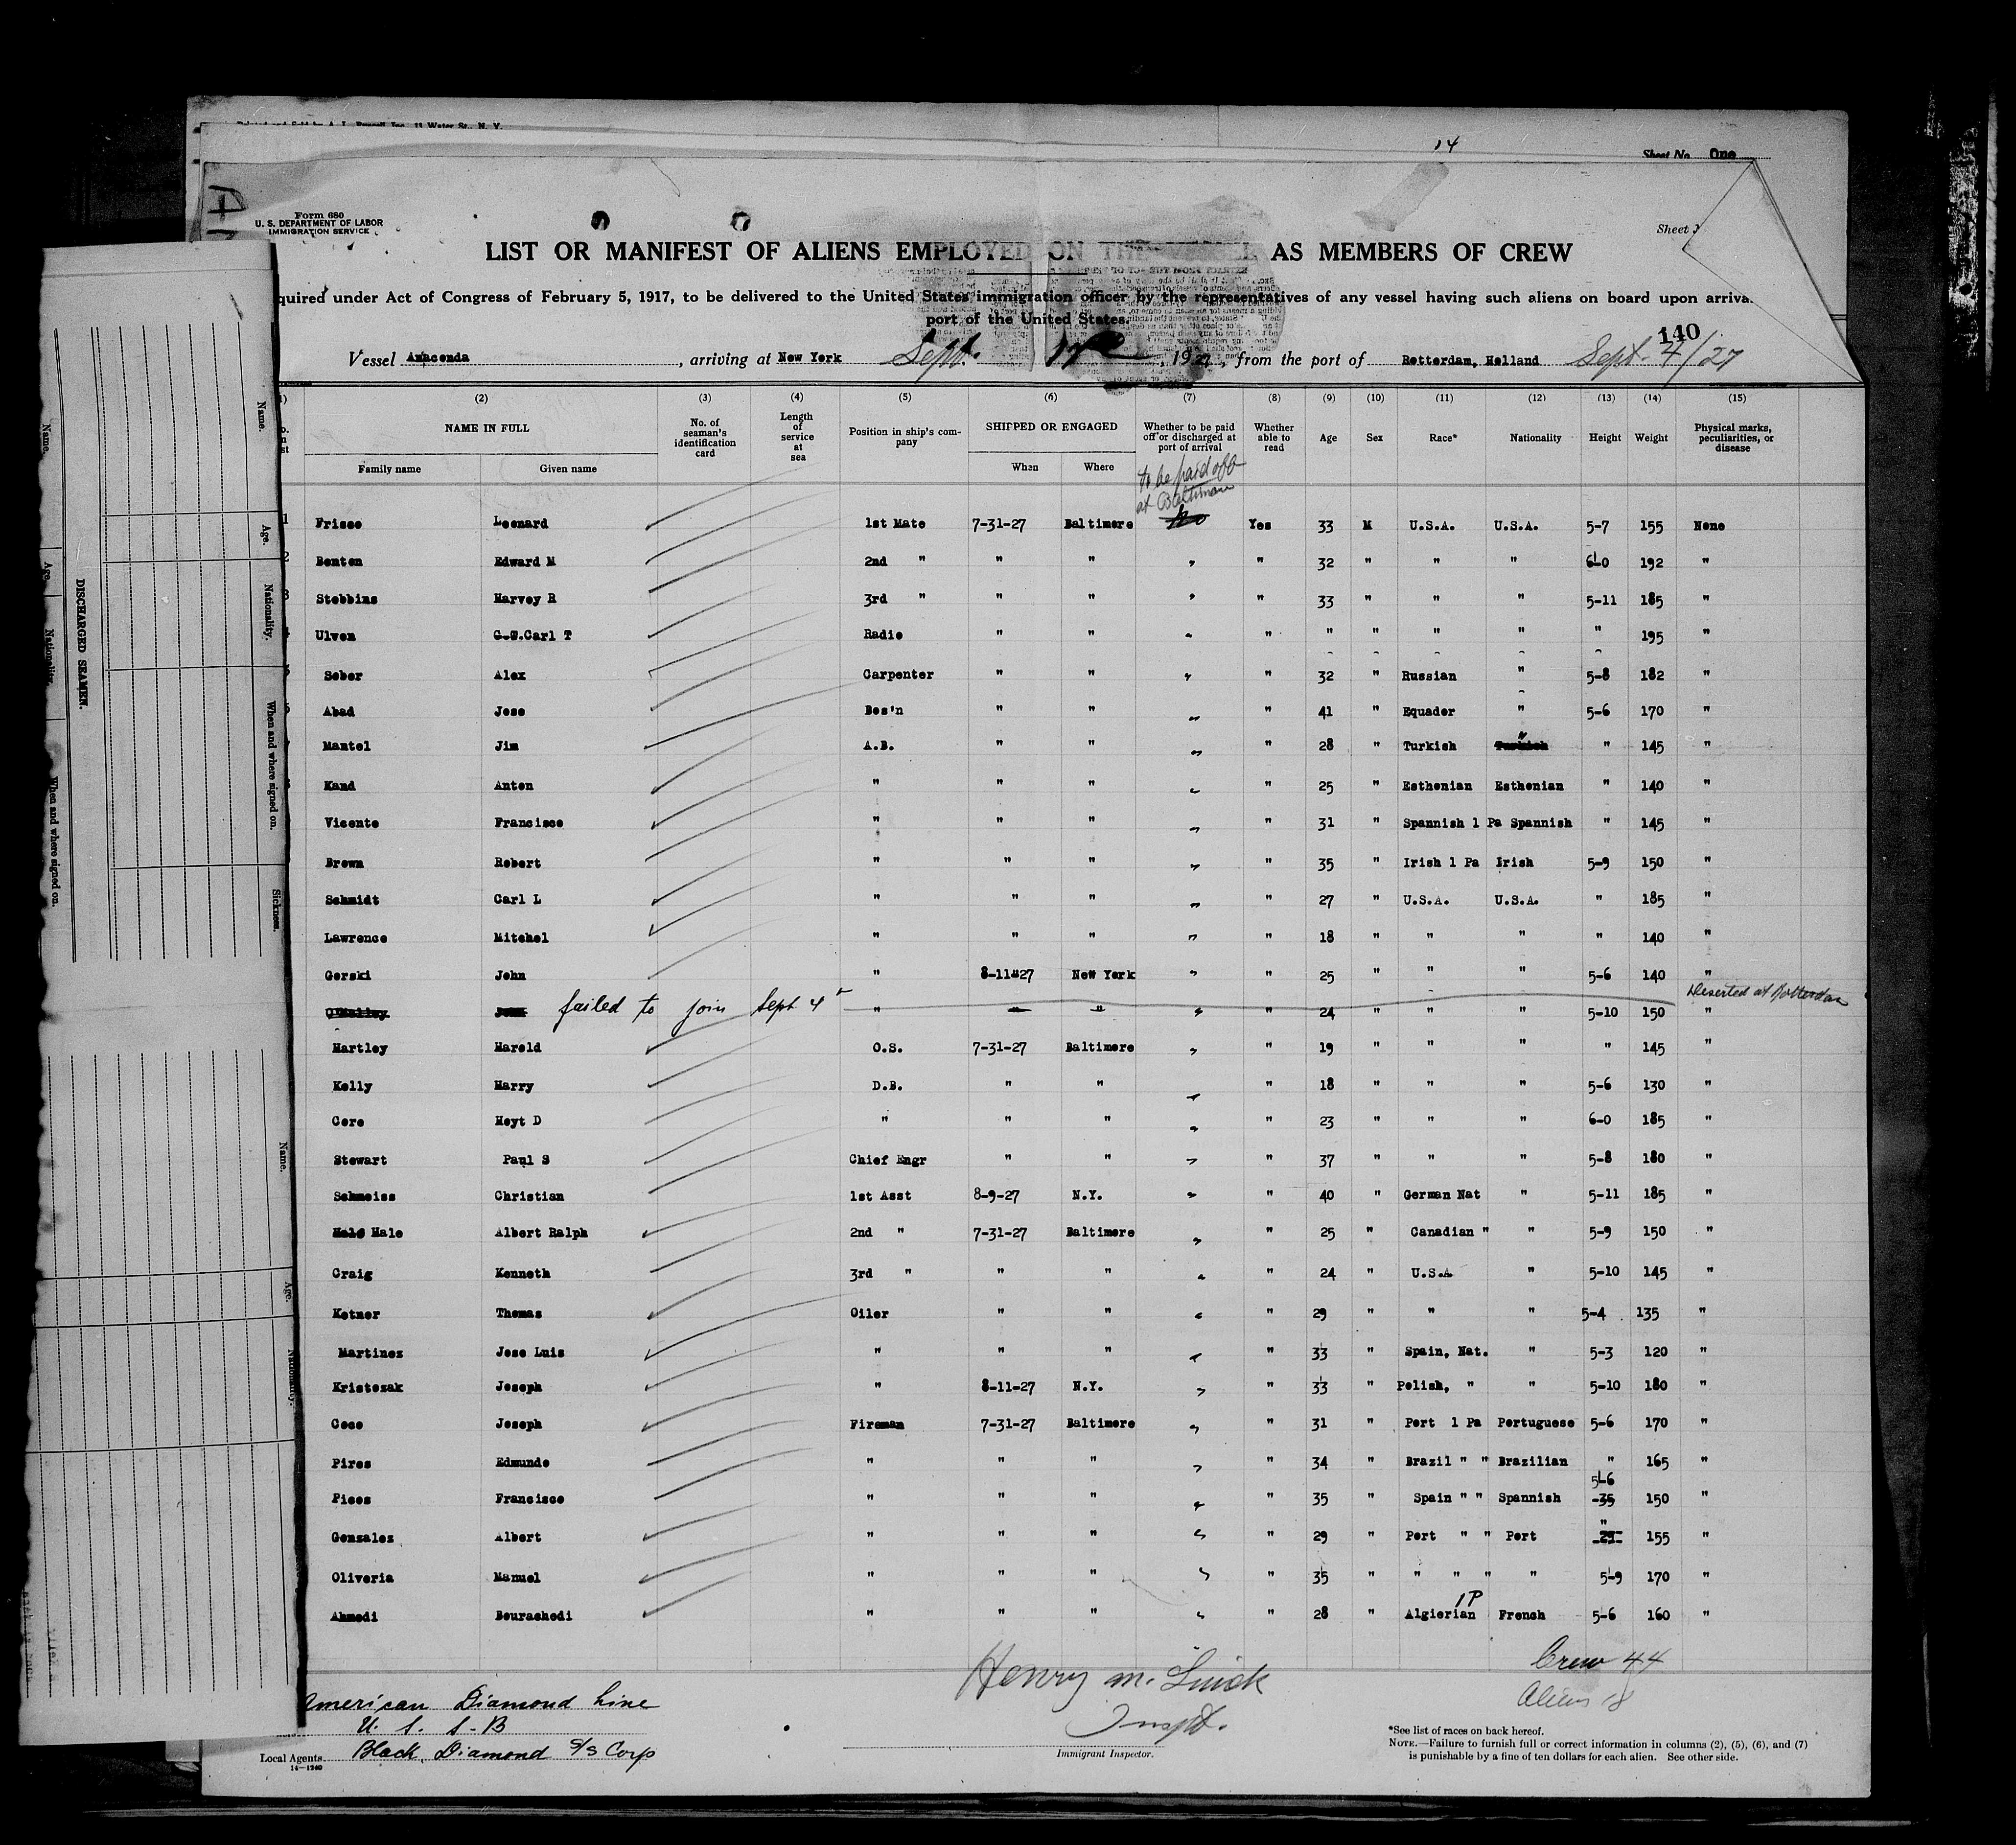 14
Sheet No. One
Form 680
U. S. DEPARTMENT OF LABOR
IMMIGRATION SERVICE
Sheet
LIST OR MANIFEST OF ALIENS EMPLOYED ON THE VESSEL AS MEMBERS OF CREW
quired under Act of Congress of February 5, 1917, to be delivered to the United States immigration officer by the representatives of any vessel having such aliens on board upon arriva
port of the United States.
140
Vessel Anaconda, arriving at New York Sept. 17, 1927, from the port of Rotterdam, Holland Sept. 4/27
(2) (3) (4) (5) (6) (7) (8) (9) (10) (11) (12) (13) (14) (15)
NAME IN FULL No. of seaman's identification card Length of service at sea Position in ship's company SHIPPED OR ENGAGED Whether to be paid off or discharged at port of arrival Whether able to read Age Sex Race* Nationality Height Weight Physical marks, peculiarities, or disease
Family name Given name When Where
to be paid off
at Baltimore
1 Frisee Leonard 1st Mate 7-31-27 Baltimore No Yes 33 M U.S.A. U.S.A. 5-7 155 None
2 Benton Edward M 2nd " " " " " 32 " " " 6-0 192 "
3 Stebbins Harvey R 3rd " " " " " 33 " " " 5-11 185 "
4 Ulven Carl T Radio " " " " " " " " " 195 "
5 Seber Alex Carpenter " " " " 32 " Russian " 5-8 182 "
6 Abad Jose Bos'n " " " " 41 " Equador " 5-6 170 "
7 Mantel Jim A.B. " " " " 28 " Turkish Turkish " " 145 "
8 Kand Anton " " " " " 25 " Esthenian Esthenian " 140 "
Vicente Francisco " " " " " 31 " Spannish 1 Pa Spannish " 145 "
Brown Robert " " " " " 35 " Irish 1 Pa Irish 5-9 150 "
Schmidt Carl L " " " " " 27 " U.S.A. U.S.A. " 185 "
Lawrence Mitchel " " " " " 18 " " " " 140 "
Gorski John " 8-11-27 New York " " 25 " " " 5-6 140 "
O'Malley John failed to join Sept 4 " " " " 24 " " " 5-10 150 " Deserted at Rotterdam
Hartley Harold O.S. 7-31-27 Baltimore " " 19 " " " " 145 "
Kelly Harry D.B. " " " " 18 " " " 5-6 130 "
Gore Hoyt D " " " " " 23 " " " 6-0 185 "
Stewart Paul S Chief Engr " " " " 37 " " " 5-8 180 "
Schmeiss Christian 1st Asst 8-9-27 N.Y. " " 40 " German Nat " 5-11 185 "
Hale Albert Ralph 2nd " 7-31-27 Baltimore " " 25 " Canadian " " 5-9 150 "
Craig Kenneth 3rd " " " " " 24 " U.S.A " 5-10 145 "
Ketner Thomas Oiler " " " " 29 " " " 5-4 135 "
Martinez Jose Luis " " " " " 33 " Spain, Nat. " 5-3 120 "
Kristozak Joseph " 8-11-27 N.Y. " " 33 " Polish, " " 5-10 180 "
Coco Joseph Fireman 7-31-27 Baltimore " " 31 " Port 1 Pa Portuguese 5-6 170 "
Pires Edmundo " " " " " 34 " Brazil " " Brazilian " 165 "
Picos Francisco " " " " " 35 " Spain " " Spannish 35 5-6 150 "
Gonzalez Albert " " " " " 29 " Port " " Port 29 " 155 "
Oliveria Manuel " " " " " 35 " " " " " 5-9 170 "
Ahmedi Bourachedi " " " " " 28 " Algierian 1P French 5-6 160 "
Crew 44
Aliens 18
Henry M. Linck
Inspt.
Immigrant Inspector.
American Diamond Line
U. S. S. B
Local Agents Black Diamond S/S Corp
14-1240
*See list of races on back hereof.
NOTE.—Failure to furnish full or correct information in columns (2), (5), (6), and (7)
is punishable by a fine of ten dollars for each alien. See other side.
DISCHARGED SEAMEN.
Name. Age. Nationality. When and where signed on.
Name. Age. Nationality. When and where signed on. Sickness.
Name. Age. Nationality.